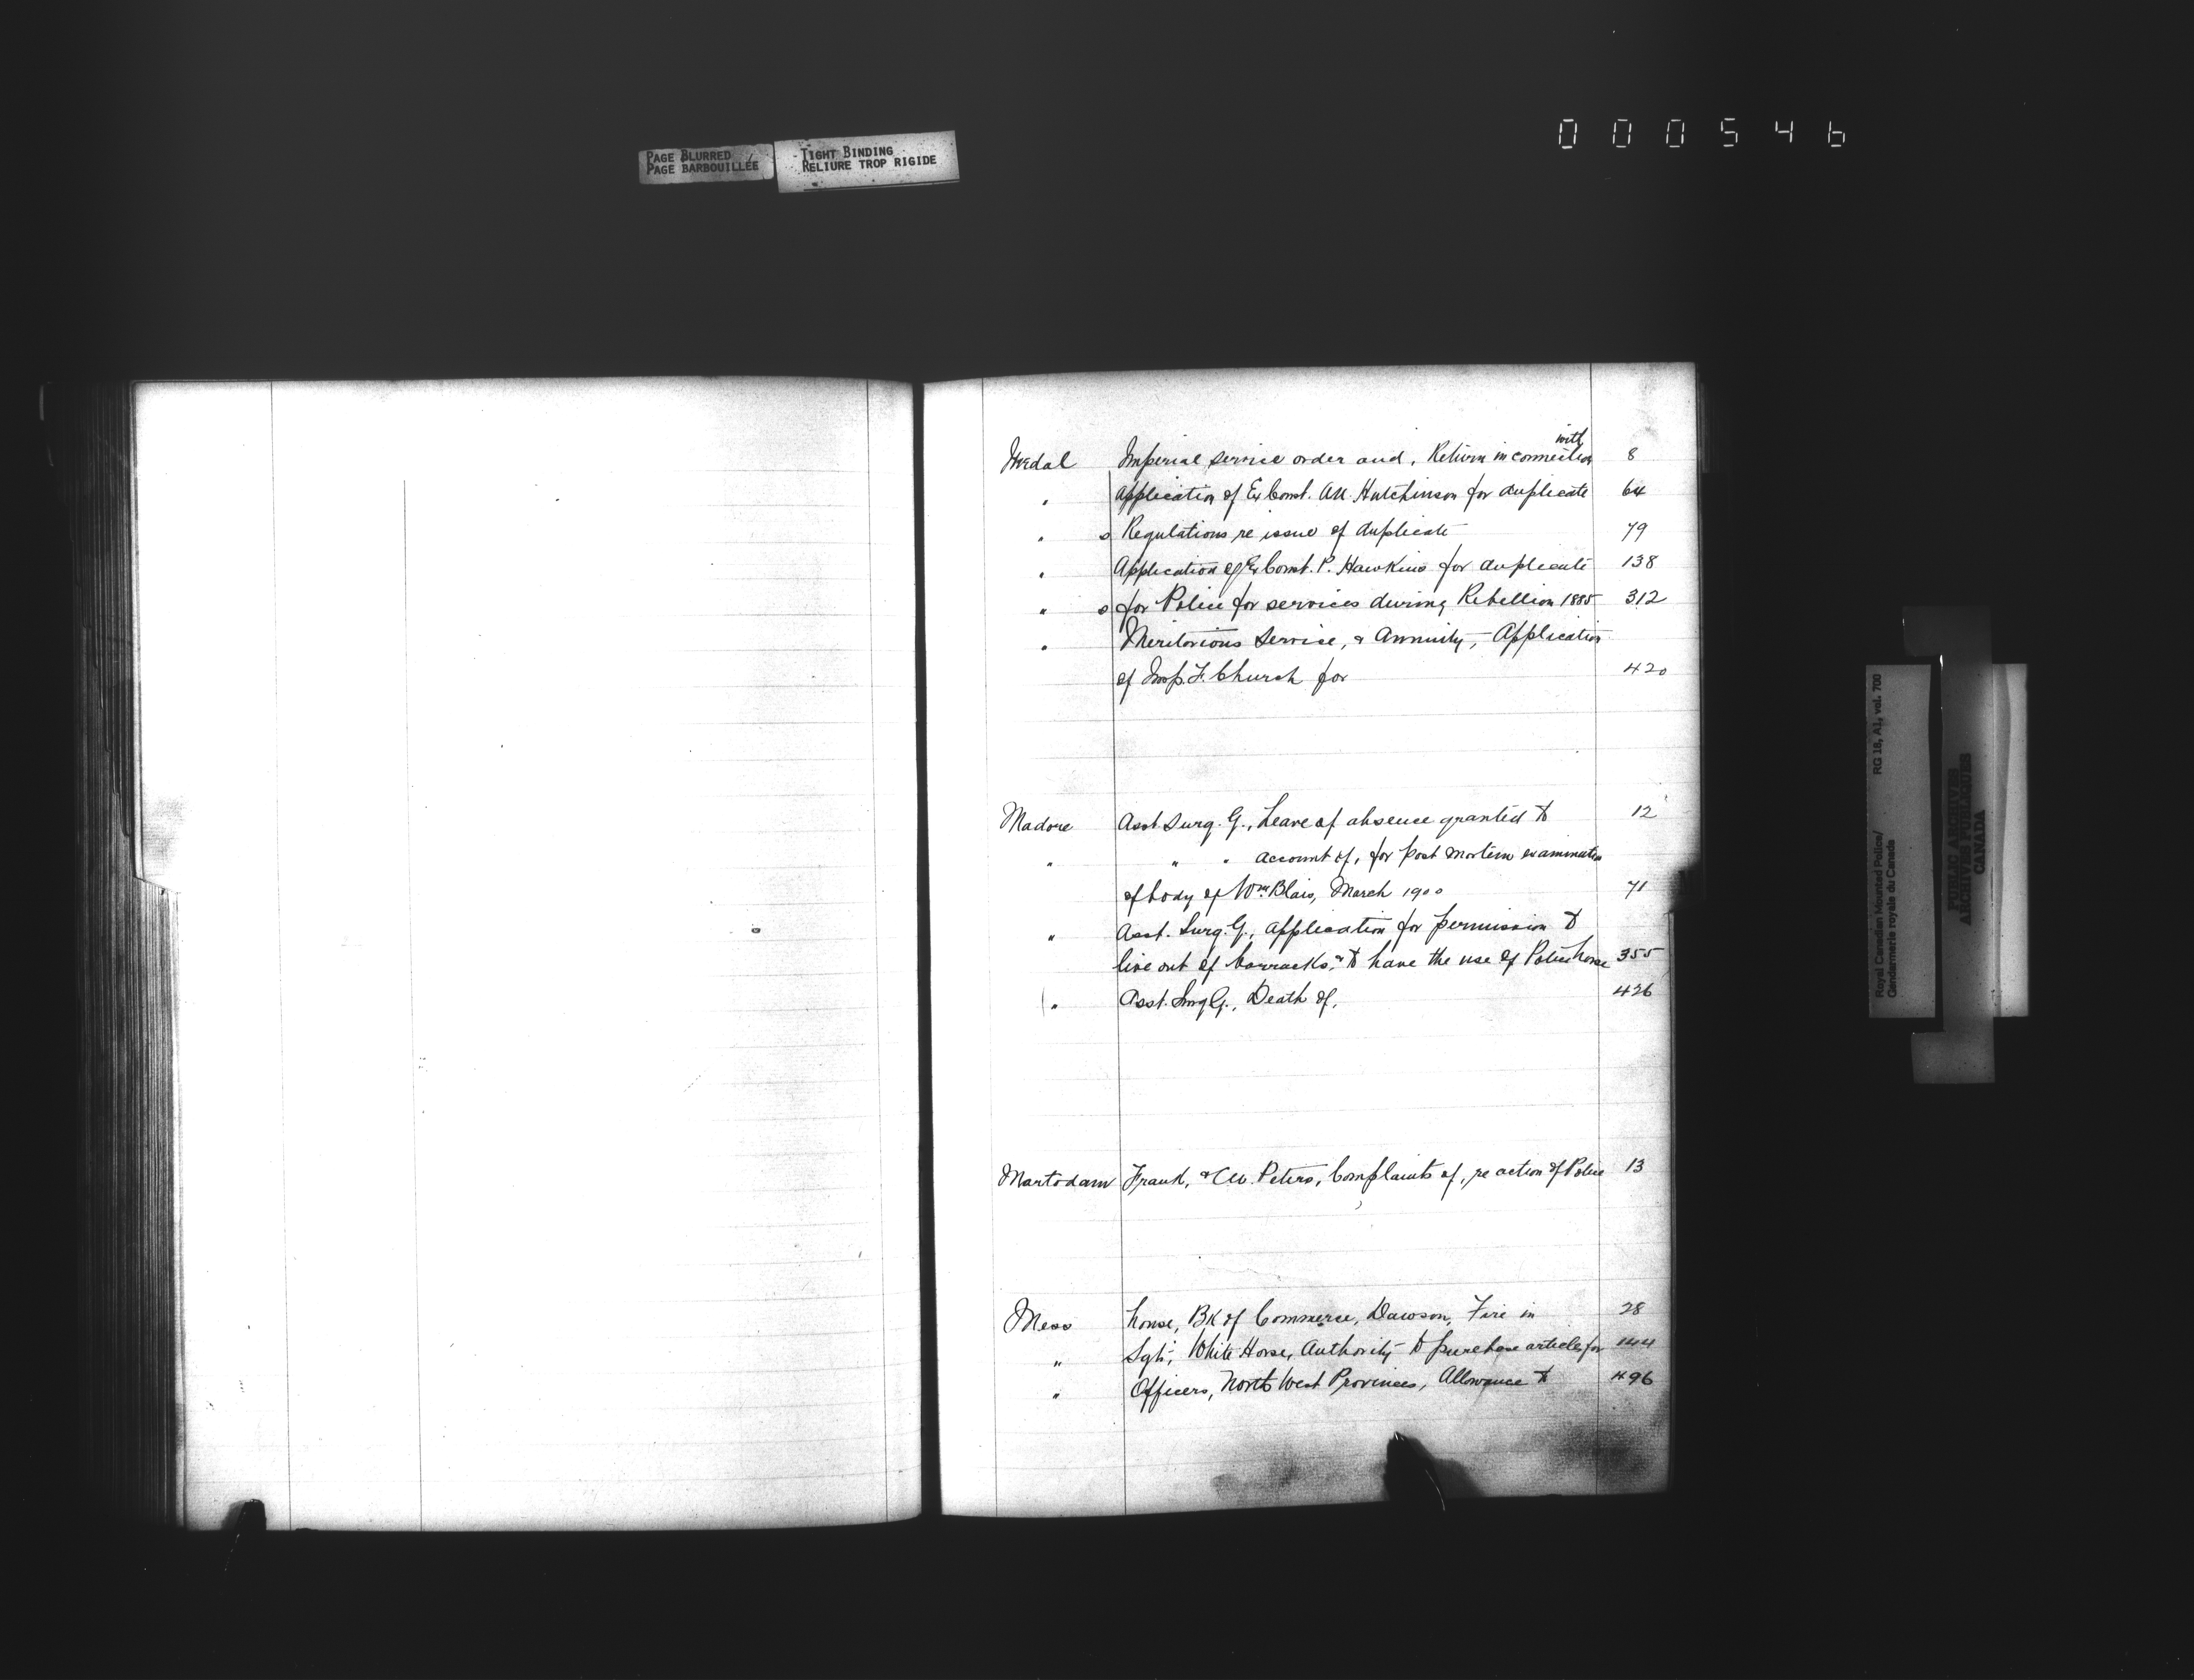 PAGE BLURRED
PAGE BARBOUILLÉE
TIGHT BINDING
RELIURE TROP RIGIDE
000546
with
Medal Imperial service order and, Return in connection 8
" Application of Ex Const. Hutchinson for duplicate 64
" s Regulations re issue of duplicate 79
" Application of Ex Const. P. Hawkins for duplicate 138
" s for Police for services during Rebellion 1885 312
" Meritorious Service, & Annuity, - Application
of Insp. F. Church for 420
Madore Asst Surg. G., Leave of absence granted to 12
" " " account of, for post mortem examination
of body of Wm Blais, March 1900 71
" Asst. Surg. G., application for permission to
live out of barracks, & to have the use of Police horse 355
" Asst. Surg G., Death of, 426
Martodam Frank, & Peters, Complaints of, re action of Police 13
Mess house, Bk of Commerce, Dawson, Fire in 28
" Sgts', White Horse, Authority to purchase articles for 144
" Officers, North West Provinces, Allowance to 496
Royal Canadian Mounted Police/ RG 18, A1, vol. 700
Gendarmerie royale du Canada
PUBLIC ARCHIVES
ARCHIVES PUBLIQUES
CANADA